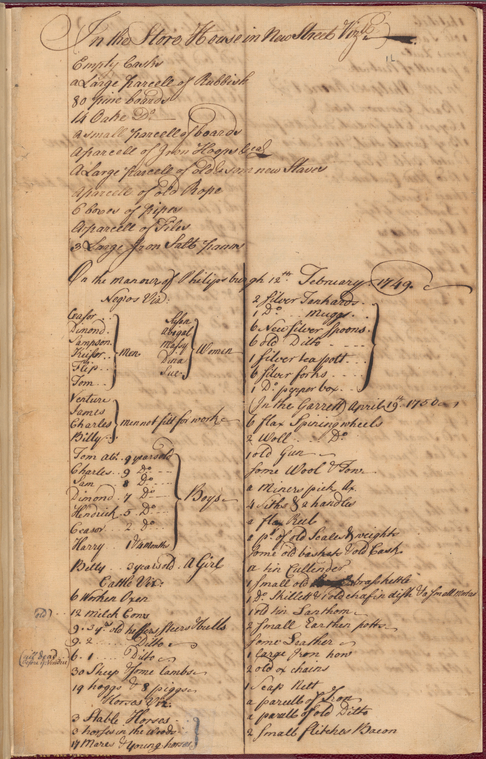 In the Store House in New Street Vizt
12
Empty Casks
a Large parcell of Rubbish
80 pine boards
14 Oake Do
a small parcell of boards
a parcell of Iron Hoops &ca
A Large parcell of old & some new Staves
a parcell of old Rope
6 boxes of pipes
A parcell of Tiles
3 Large Iron Salt panns
On the mannor of Philipsburgh 12th February 1749
Negros Viz
Ceasor
Dimond
Sampson
Keisar
Flip
Tom
men
Susan
abigal
Massy
Dina
Sue
Women
Venture
James
Charles
Billy
men not fitt for worke
Tom abt 9 years old
Charles 9 Do
Sam 8 Do
Dimond 7 Do
Hendrick 5 Do
Ceasor 2 Do
Harry 1 & 4 Months
Boys
Betty 3 years old A Girl
Cattle Viz
6 Worken Oxen
old
12 Milch Cows
9 3 yr old heffers steers & bulls
9 2 Ditto
all dead
6 1 Ditto
30 Sheep Some Lambs
19 hoggs & 8 piggs
Horses Viz
3 Stable Horses
3 horses in the woods
17 Mares & young horses
2 Silver Tankards
1 Do muggs
6 New Silver spoons
6 old Ditto
1 silver tea pott
6 silver forks
1 Do pepper box
In the Garrett April 19th 1750
6 flax Spining wheels
2 Wooll Do
1 old Gun
Some Wool &
a Miners pick ax
4 Siths & 2 handles
a flax Reel
a pr of old Scales & weights
Some old baskets & old Cask
a tin Cullender
1 Small old brass kettle
1 do Skillet & 1 old chafin dish & 2 Small
1 old tin Lanthorn
2 Small Earthen potts
Some Leather
1 Large Iron
2 old ox chains
1 Nett
a parcell of Iron
a parcell of old Ditto
2 Small flitches Bacon